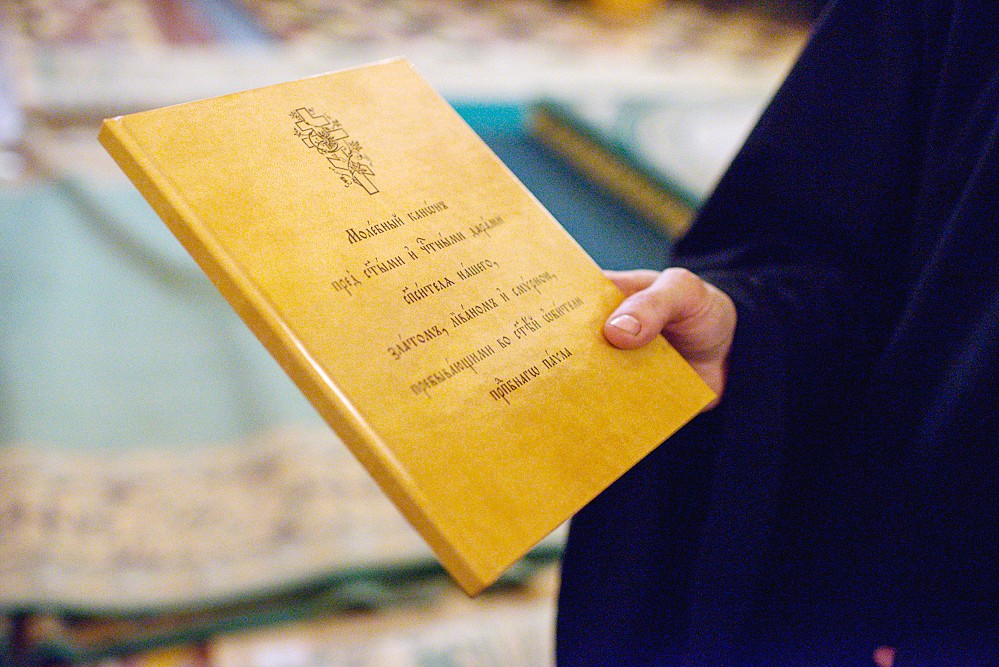 Моле́бный кано́нъ
пред̾ ст҃ы́ми и҆ чⷭ҇тны́ми дара́ми
сп҃си́телѧ на́шегѡ,
зла́томъ, лїва́номъ и҆ смѵ́рною,
пребыва́ющими во ст҃ѣ́й ѡ҆би́тели
прпⷣбнагѡ па́ѵла